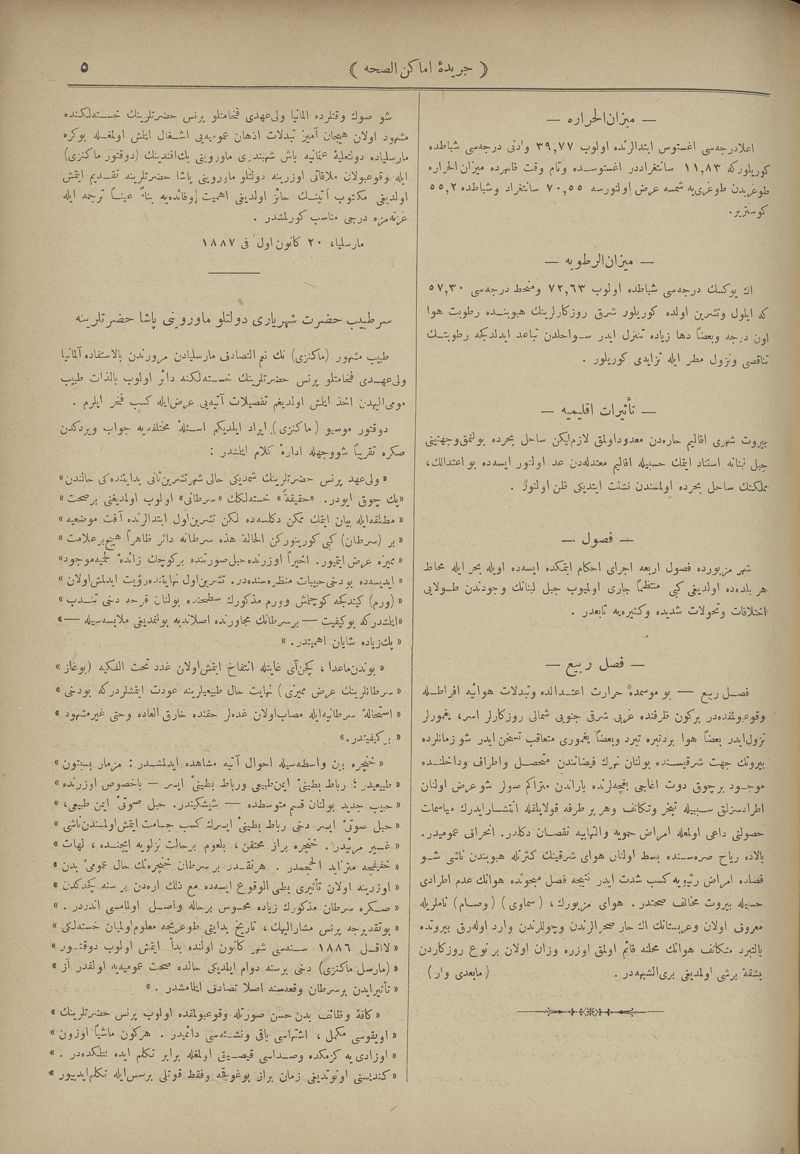 ﴿ جريدۀ اماكن الصحه ﴾
٥
— ميزان الحراره —
اعلا درجه‌سى اغستوس ابتدالرنده اولوب ٣٩,٧٧ وادنى درجه‌سى شباطده
كوريلوركه ١١,٨٣ سانتغراددر اغستوسده وتام وقت ظهرده ميزان الحراره
طوغريدن طوغرى‌يه شمسه عرض اولنورسه ٧٠,٥٥ سانتغراد وشباطده ٥٥,٢
كوستررر.
— ميزان الرطوبه —
اك يوكسك درجه‌سى شباطده اولوب ٧٢,٦٣ ومنحط درجه‌سى ٥٧,٣٠
كه ايلول وتشرين اولده كوريلور شرق روزكارلرينك هبوبنده رطوبت هوا
اون درجه وبعضاً دها زياده تنزل ايدر سواحلدن تباعد ايدلدكجه رطوبتك
تناقصى ونزول مطر ايله تزايدى كوريلور.
— تأثيرات اقليميه —
بيروت شهرى اقاليم حاره‌دن معدود اولمق لازم ايكن ساحل بحرده بولنمق وجهتينى
جبل لبنانه استناد ايتمك حسبيله اقاليم معتدله‌دن عد اولنور ايسه‌ده بو اعتدالك،
مملكتك ساحل بحرده اولمسندن نشئت ايتديكى ظن اولنور.
— فصول —
شهر مزبورده فصول اربعه اجراى احكام ايتمكده ايسه‌ده اويله بحر ايله محاط
هر بلده‌ده اولديغى كبى منتظماً جارى اولميوب جبل لبنانك وجودندن طولايى
اختلافات وتحولات شديده وكثيره‌يه تابعدر.
— فصل ربيع —
فصل ربيع — بو موسمده حرارت اعتدالده وتبدلات هوائيه افراطله
وقوعبولمقده‌در بركون ظرفنده غربى شرقى جنوبى شمالى روزكارلر اسر، يغمورلر
نزول ايدر بعضاً هوا بردنبره تبرد وبعضاً يغمورى متعاقب تسخن ايدر شو زمانلرده
بيروتك جهت شرقيسنده بولنان نهرك فيضانندن متحصل واطراف وداخلنده
موجود برچوق دوت اغاجى باغچه‌لرنده ياراندن متراكم صولر شو عرض اولنان
اطرادسزلق سببيله تبخر وتكاثف وهر برطرفه قولايلقله انتشار ايدرك مياسمات
حصولنى داعى اولمغله امراض حمويه والتهابيه نقصان دكلدر. انحراف عموميدر.
بالاده رياح صره‌سنده بسط اولنان هواى شرقينك كثرتله هبوبندن ناشى شو
فصلده امراض رئويه كسب شدت ايدر نتيجه فصل مبحوثده هوانك عدم اطرادى
حسبيله بيروت مخالف صحتدر. هواى مزبورك، (سماوى) (وصام) ناملريله
معروف اولان وعربستانك اك حار صحرالرندن وچوللرندن وارد اوله‌رق بيروتده
بالتبرد متكاثف هوانك محلنه قائم اولمق اوزره وزان اولان بر نوع روزكاردن
بشقه برشى اولمديغى برى الشبهه‌در.        (مابعدى وار)
شو صوك وقتلرده المانيا ولى‌عهدى فخامتلو پرنس حضرتلرينك خسته‌لكنده
مشهود اولان هيجان آميز تبدلات اذهان عموميه‌يى اشغال ايتمش اولمغله بوكره
مارسليا‌ده دولت‌عليۀ عثمانيه باش شهبندرى ماورونى بك‌افندينك (دوقتور ماكنزى)
ايله وقوعبولان ملاقاتى اوزرينه دولتلو ماورونى پاشا حضرتلرينه تقديم ايتمش
اولديغى مكتوب آتينك حائز اولديغى اهميت وفائده‌يه بناءً عيناً ترجمه ايله
غزته‌مزه درجى مناسب كورلمشدر.
مارسليا، ٢٠ كانون اول فى ١٨٨٧
سرطبيب حضرت شهريارى دولتلو ماورونى پاشا حضرتلرينه
طبيب مشهور (ماكنزى) نك نعم التصادف مارسليادن مرورندن بالاستفاده آلمانيا
ولى‌عهدى فخامتلو پرنس حضرتلرينك خسته‌لكنه دائر اولوب بالذات طبيب
مومى‌اليهدن اخذ ايتمش اولديغم تفصيلات آتيه‌يى عرض ايله كسب فخر ايلرم.
دوقتور موسيو (ماكنزى) ايراد ايلديكم اسئلۀ مختلفه‌يه جواب ويردكدن
صكره تقريباً شو وجهله ادارۀ كلام ايتمشدر:
« ولى‌عهد پرنس حضرتلرينك شمديكى حالى شهر تشرين ثانى بدايتنده‌كى حالندن »
« پك چوق ايودر. «حقيقة» خسته‌لك «سرطانى» اولوب اولمديغنى برصحت »
« مطلقه ايله بيان ايتمك ممكن دكلسه‌ده لكن تشرين اول ابتدالرنده آفت موضعيه »
« بر (سرطان) كبى كورينوركن الحالة هذه سرطانه دائر ظاهراً هيچ بر علامت »
« مميزه عرض ايتميور. اخيراً اوزرنده حبل صورتنده بر كوچك زائدۀ لحميه موجود »
« ايديسه‌ده بو دخى حبيبات منظره‌سنده‌در. تشرين اول نهايتنده رؤيت ايدلمش اولان »
« (ورم) كيتدكجه كوچلمش وورم مذكورك سطحنده بولنان قرحه دخى تندب »
« ايتمشدركه بو كيفيت — بر سرطانك مجاورنده اصلا ندبه بولنمديغى ملابسه‌سيله — »
« پك‌زياده شايان اهميتدر. »
« بوندن ماعدا، كچن آى غايتله انتفاخ ايتمش اولان غدد تحت الفكيه (بوغاز »
« سرطانلرينك عرض مميزى) نهايت حال طبيعيلرينه عودت ايتمشلردركه بو دخى »
« استحالۀ سرطانيه‌ايله مصاب اولان غده‌لر حقنده خارق العاده وحتى غير مشهود »
« بر كيفيتدر. »
« حنجره‌بين واسطه‌سيله احوال آتيه مشاهده ايدلمشدر: مزمار بستون »
« طبيعيدر؛ رباط بطينىء ايمن طبيعى ورباط بطينىء ايسر — باخصوص اوزرنده »
« حبيب جديد بولنان قسم متوسطده — شيشكيندر. حبل صوتىء ايمن طبيعى، »
« حبل صوتىء ايسر دخى رباط بطينىء ايسرك كسب جسامت ايتمش اولمسندن ناشى »
« غير مرئيدر. حنجره براز محتقن، بلعوم برحالت نزلويه ايچنده، لهات »
« خفيفجه متزايد الحجمدر. هر نقدر بر سرطان حنجره‌نك حال عمومىء بدن »
« اوزرينه اولان تأثيرى بطى الوقوع ايسه‌ده مع ذلك اره‌دن بر سنه كچدكدن »
« صكره سرطان مذكورك زياده محسوس برحاله واصل اولمامسى اندردر. »
« بو تقديرجه پرنس مشاراليهك، تاريخ بدايتى طوغريجه معلوم اولميان خسته‌لكى »
« لااقل ١٨٨٦ سنه‌سى شهر كانون اولنده بدأ ايتمش اولوب دوقتور »
« (مارسل ماكنزى) دخى برسنه دوام ايلديكى حالده صحت عموميه‌يه اولقدر آز »
« تأثير ايدن بر سرطان وقعه‌سنه اصلا تصادف ايتمامشدر. »
« كافۀ وظائف بدن حسن صورتله وقوعبولمقده اولوب پرنس حضرتلرينك »
« اويقوسى مكمل، اشتهاسى باقى ونشئه‌سى دائميدر. هركون ماشياً اوزون »
« اوزادى‌يه كزمكده وصداسى قيصيق اولمغله برابر تكلم ايده بيلمكده‌در. »
« كنديسنى اونوتديغى زمان براز بوغوقجه وفقط قوتلى برسس ايله تكلم ايدييور »